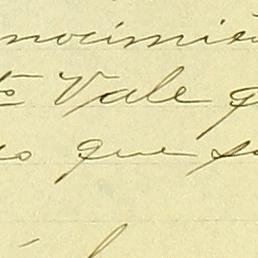 nocimie
to Vale q
os que so